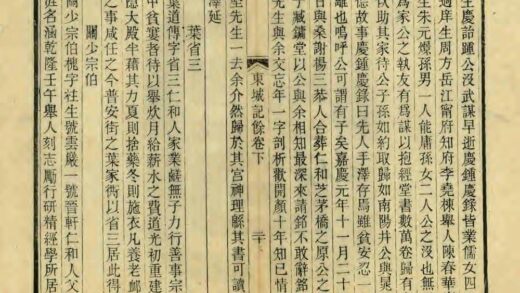 生慶諮鍾公沒武謀早逝慶鍾慶錄皆業儒女四
適庠生周方岳江甯府知府李堯棟舉人陳春華
生朱元燠孫男一人能庸孫女二人公之沒也無
為家公之執友有為謀以抱經堂書數萬卷歸有
伏助其家待公子孫如約取歸如南陽井公與晁
德故事慶鍾慶錄曰先人手澤存焉雖貧安忍一
離也嗚呼公可謂有子矣嘉慶元年十一月二十
日與桑謝楊三恭人合葬仁和芝茅橋之原公之
子臧鏞堂以公與余相知最深來請銘不敢辭銘
先生與余交忘年一字剖析歡開顏十年知己情
東城記餘卷下
二十
至先生一去余介然歸於其宮神理緜其書可讀
澤延
葉省三
葉道傳字省三仁和人家業鹺無子力行善事宗
中貧褰者待以舉炊月給薪水之費道光初重建
隱大殿半藉其力夏則捨藥冬則施衣凡養老卹
之事咸任之今普安街之葉家衖以省三居此得
關少宗伯
關少宗伯槐字柱生號雲巖一號晉軒仁和人父
姓名涵乾隆壬午舉人刻志勵行研精經學所居